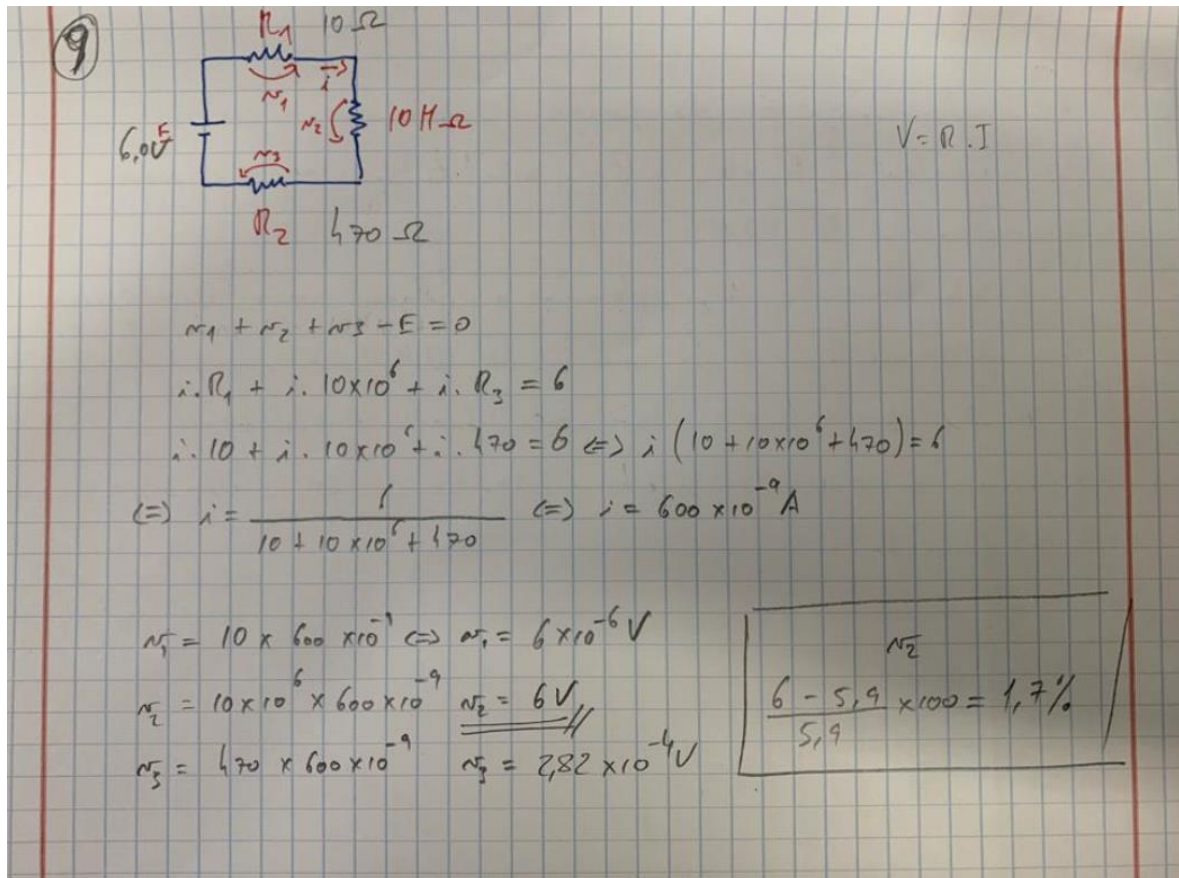 9
R1 10 Ω
i
v1
v2 10 M Ω
6,0V E
v3
R2 470 Ω
V = R . I
v1 + v2 + v3 - E = 0
i. R1 + i. 10x10^6 + i. R3 = 6
i. 10 + i. 10x10^6 + i. 470 = 6 <=> i (10 + 10x10^6 + 470) = 6
<=> i = 6 / (10 + 10x10^6 + 470) <=> i = 600 x10^-9 A
v1 = 10 x 600 x10^-9 <=> v1 = 6 x10^-6 V
v2 = 10x10^6 x 600 x10^-9 v2 = 6 V //
v3 = 470 x 600x10^-9 v3 = 2,82 x10^-4 V
v2
(6 - 5,9) / 5,9 x100 = 1,7%